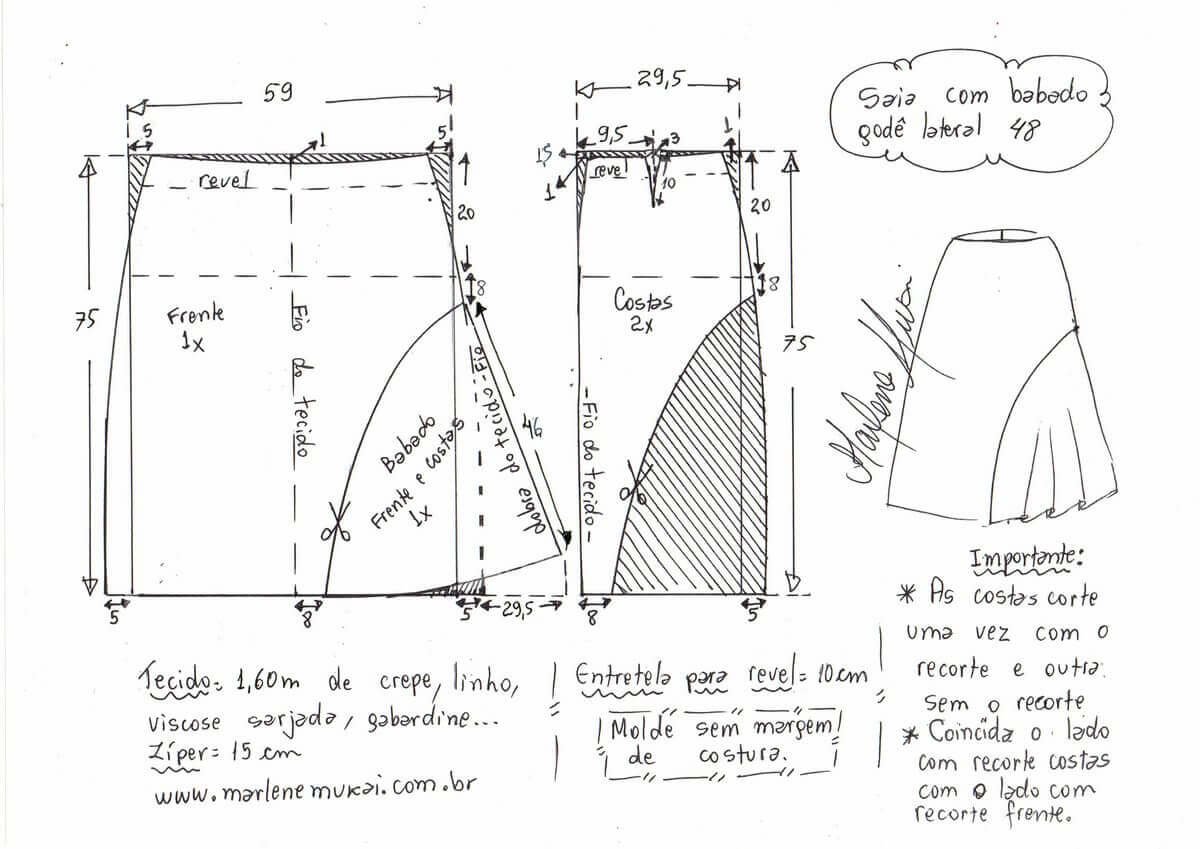 Saia com babado
godê lateral 48
59
5
1
5
revel
20
8
75
Frente
1x
Fio do tecido
Babado
Frente e costas
1x
Fio
dobre do tecido
46
5
8
5
29,5
29,5
9,5
3
1
1,5
revel
1
10
20
8
Costas
2x
Fio do tecido
75
8
5
Marlene Mukai
Tecido= 1,60m de crepe, linho,
viscose sarjada, gabardine...
Zíper= 15 cm
www.marlenemukai.com.br
Entretela para revel= 10cm
Molde sem margem
de costura.
Importante:
* As costas corte
uma vez com o
recorte e outra
sem o recorte
* Coincida o lado
com recorte costas
com o lado com
recorte frente.